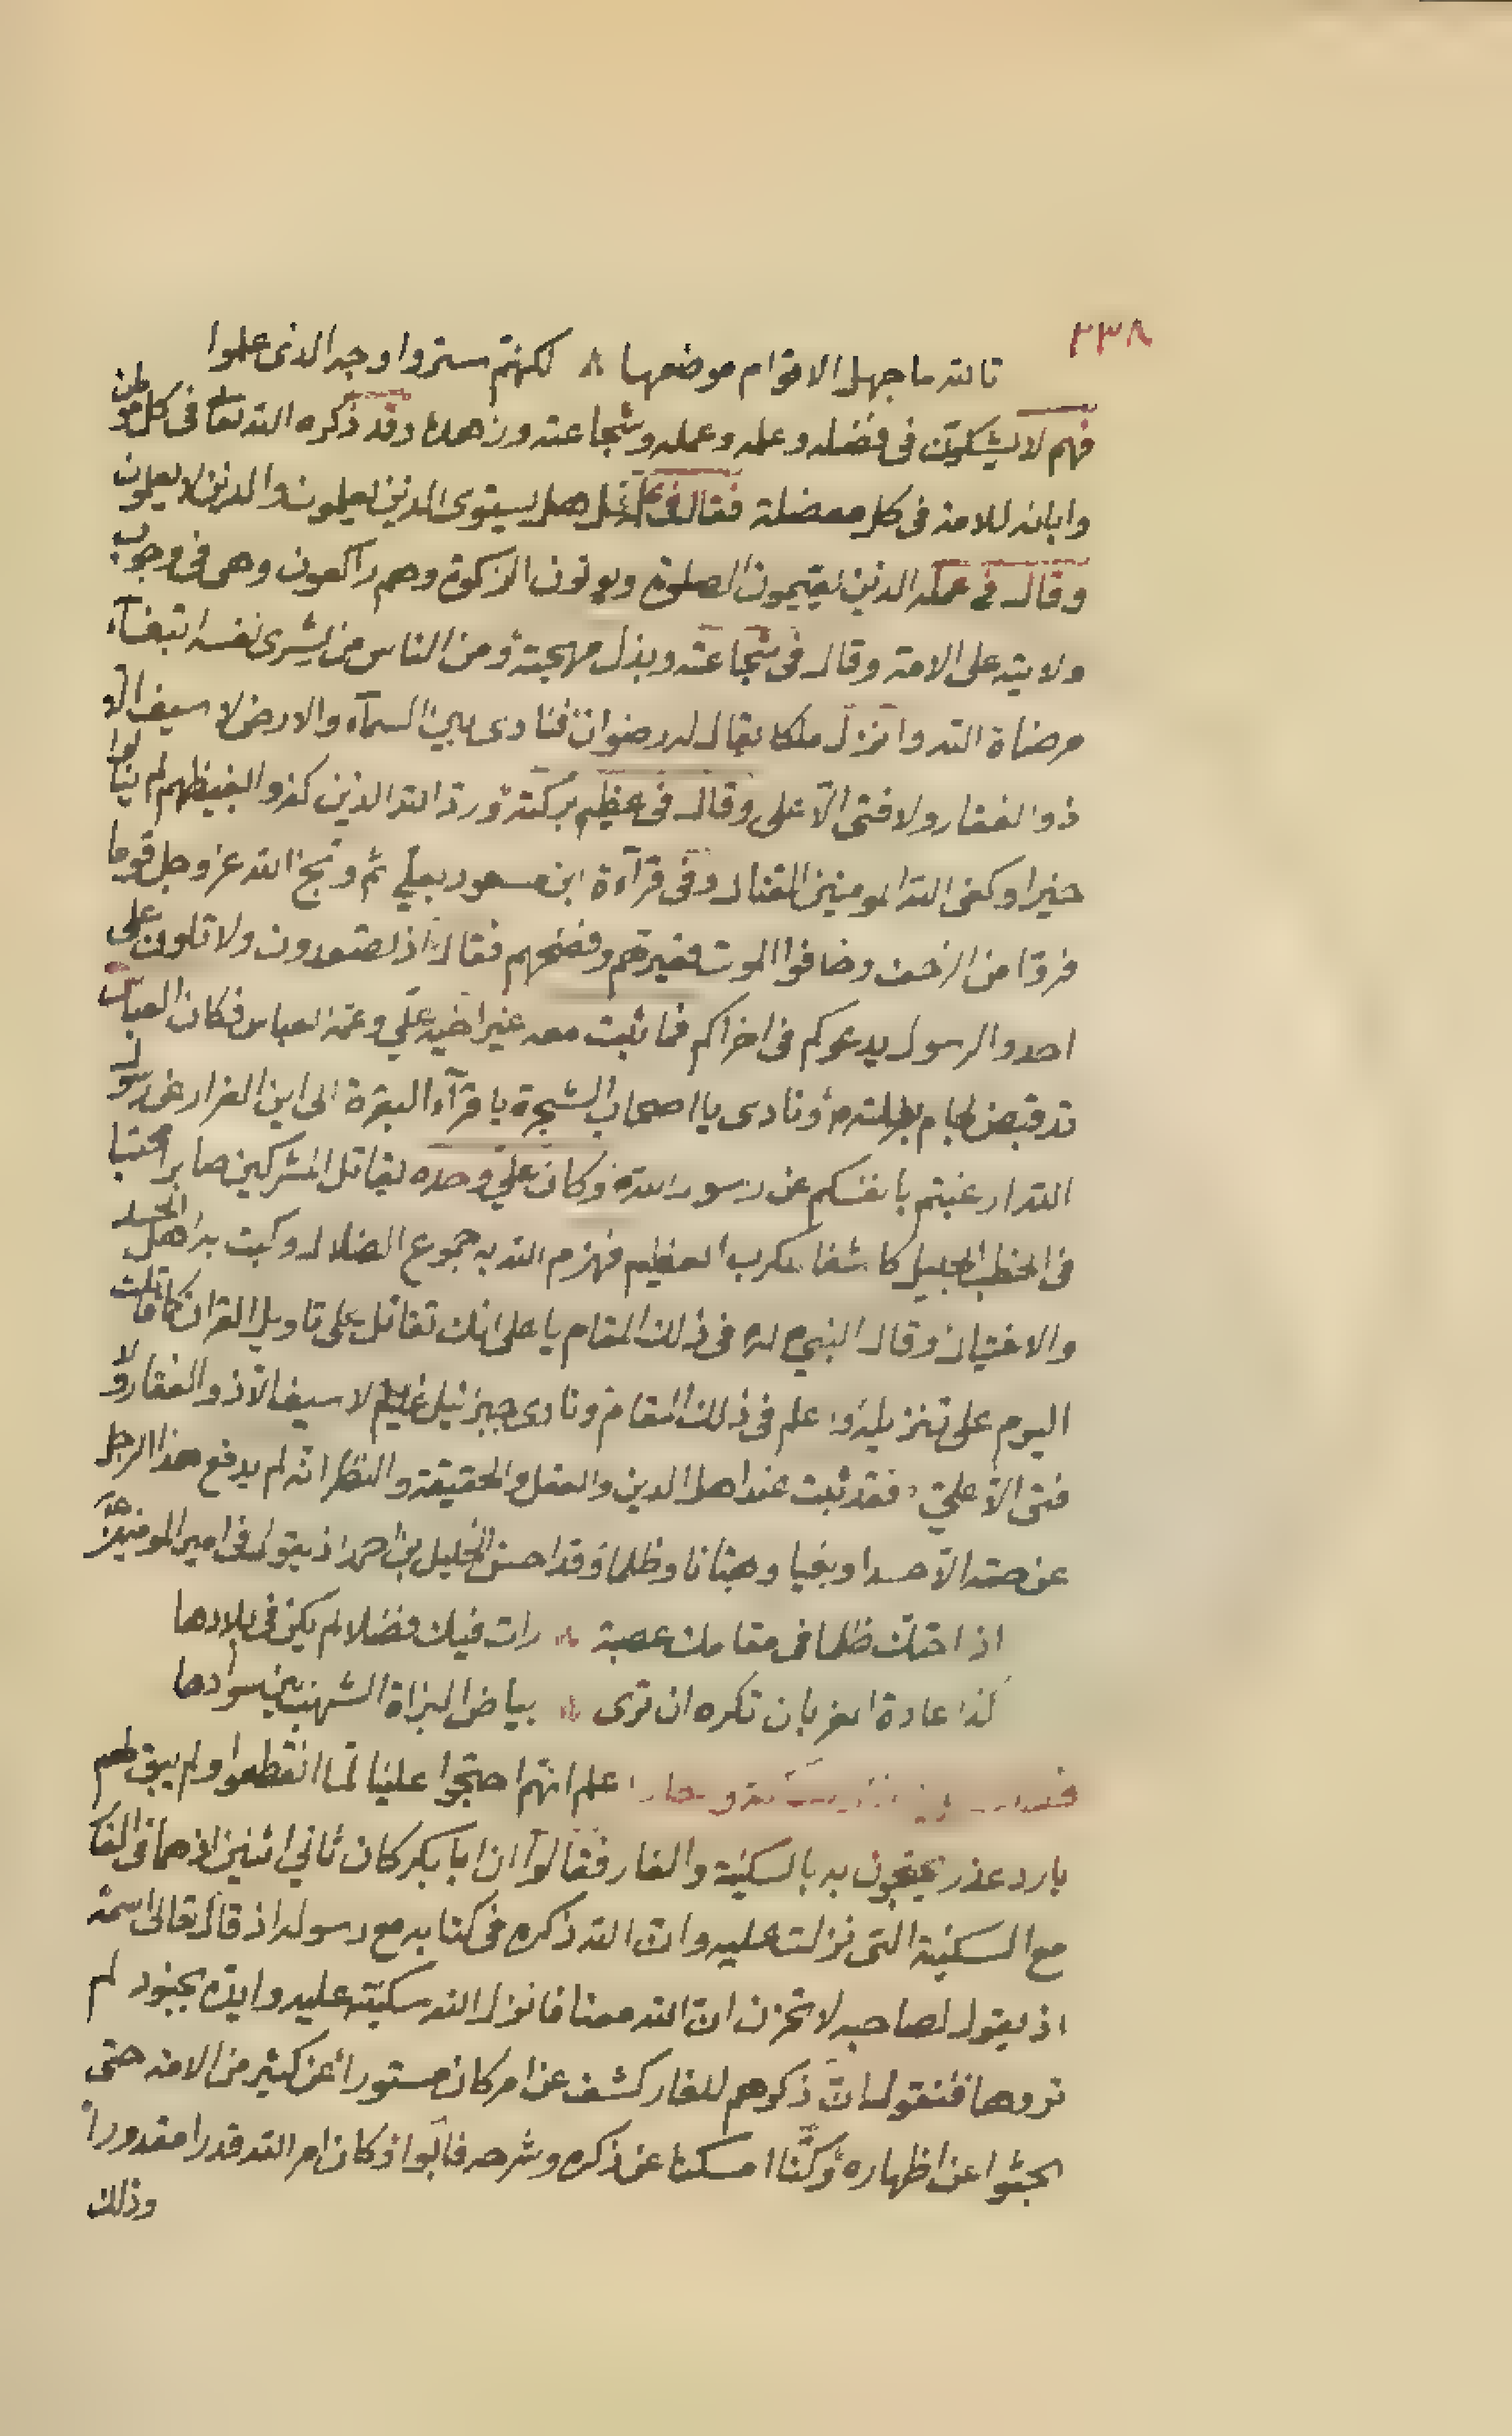 ٢٣٨
تالله ما جهل الاقوام موضعها ٨ لكنهم ستروا وجه الذى علموا
فهم لا يشكون فى فضله وعلمه وعمله وشجاعته وزهده وقد ذكره الله تعا فى كل موطن
وابانه للامة فى كل معضلة فقال فى هل يستوى الذين يعلمون والذين لا يعلمون
وقال فى عمله الذين يقيمون الصلوة ويوتون الزكوة وهم راكعون وهى فى وجوب
ولايته على الامة وقال فى شجاعته وبذل مهجته ومن الناس من يشرى نفسه ابتغآء
مرضاة الله وانزل ملكا يقال له رضوان فنادى بين السمآء والارض لا سيف الا
ذو الفقار ولا فتى الّا على وقال فى عظيم بركته ورد الله الذين كفروا بغيظهم لم ينالوا
خيرا وكفى الله المومنين القتال وفى قرآءة ابن مسعود بعلى ثم وبّخ الله عز وجل قوما
فروا من الزحف وخافوا الموت فعيرهم وفضحهم فقال اذ تصعدون ولا تلوون على
احد والرسول يدعوكم فى اخراكم فما ثبت معه غير اخيه على وعمه العباس فكان العباس
قد قبض لجام بغلته ونادى يا اصحاب الشجرة يا قرآء البقرة الى اين الفرار عن رسول
الله ارغبتم بانفسكم عن رسول الله وكان على وحده يقاتل المشركين صابرا محتسبا
فى الخطب الجليل كاشفا لكرب العظيم فهزم الله به جموع الضلال وكبت به اهل الحسد
والاغتيال وقال النبى له فى ذلك المقام يا على انك تقاتل على تاويل القران كما قاتلت
اليوم على تنزيله واعلم فى ذلك المقام ونادى جبرئيل لا سيف الّا ذو الفقار ولا
فتى الّا على فقد ثبت عند اهل الدين والعقل والحقيقة والنظر انه لم يدفع هذا الرجل
عن حقه الّا حسدا وبغيا وبهتانا وظلما وقد احسن الخليل بن احمد اذ يقول فى امير المومنين
اذ احتك ظلما فى مقامك عصبة رات فيك فضلا لم يكن فى بلادها
كذا عادة الغربان تكره ان ترى بياض البزاة الشهب بين سوادها
علم انهم احتجوا علينا لما انقطعوا ولم يبق لهم
بارد عذر يحتجون به بالسكينة والغار فقالوا ان ابا بكر كان ثاني اثنين اذ هما فى الغار
مع السكينة التى نزلت عليه وان الله ذكره فى كتابه مع رسوله اذ قال تعالى اسمه
اذ يقول لصاحبه لا تحزن ان الله معنا فانزل الله سكينته عليه وايده بجنود لم
تروها فنقول ان ذكرهم للغار كشف عن امر كان مستورا عن كثير من الامة حتى
بحثوا عن اظهاره وكنّا امسكنا عن ذكره وشرحه فابوا وكان امر الله قدرا مقدورا
وذلك